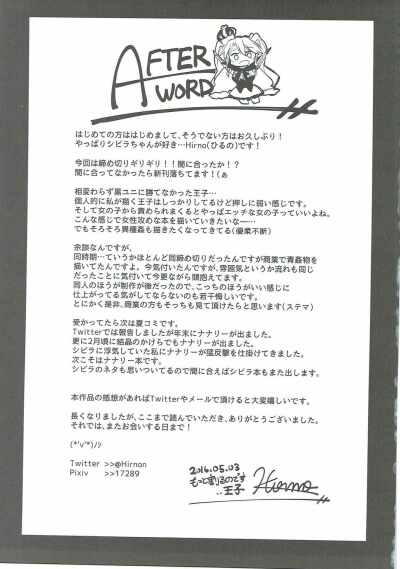 AFTER
WORD
はじめての方ははじめまして、そうでない方はお久しぶり！
やっぱりシビラちゃんが好き…Hirno(ひるの)です！
今回は締め切りギリギリ！！間に合ったか！？
間に合ってなかったら新刊落ちてます！(ぁ
相変わらず黒ユニに勝てなかった王子…
個人的に私が描く王子はしっかりしてるけど押しに弱い感じです。
そして女の子から責められまくるとやっぱエッチな女の子っていいよね。
こんな感じで女性攻めな本を描いていきたいなー…
でもそろそろ異種姦も描きたくなってきてる(優柔不断)
余談なんですが、
同時期…ていうかほとんど同締め切りだったんですが商業で青姦物を
描いてたんですよ。今気付いたんですが、雰囲気というか流れも同じ
だったことに気付いて今更ながら頭抱えてます。
同人のほうが制作が後だったので、こっちのほうがいい感じに
仕上がってる気がしてならないのも若干悔しいです。
とにかく是非、商業の方もそっちも見て頂けたらと思います(ステマ)
受かってたら次は夏コミです。
Twitterでは報告しましたが年末にナナリーが出ました。
更に2月頃に結晶のかけらでもナナリーが出ました。
シビラに浮気していた私にナナリーが猛反撃を仕掛けてきました。
次こそはナナリー本です。
シビラのネタも思いついてるので間に合えばシビラ本もまた出します。
本作品の感想があればTwitterやメールで頂けると大変嬉しいです。
長くなりましたが、ここまで読んでいただき、ありがとうございました。
それでは、またお会いする日まで！
(*'v'*)ﾉｼ
Twitter >>@Hirnon
Pixiv >>17289
2016.05.03
もっと割るのです
王子
Hirno